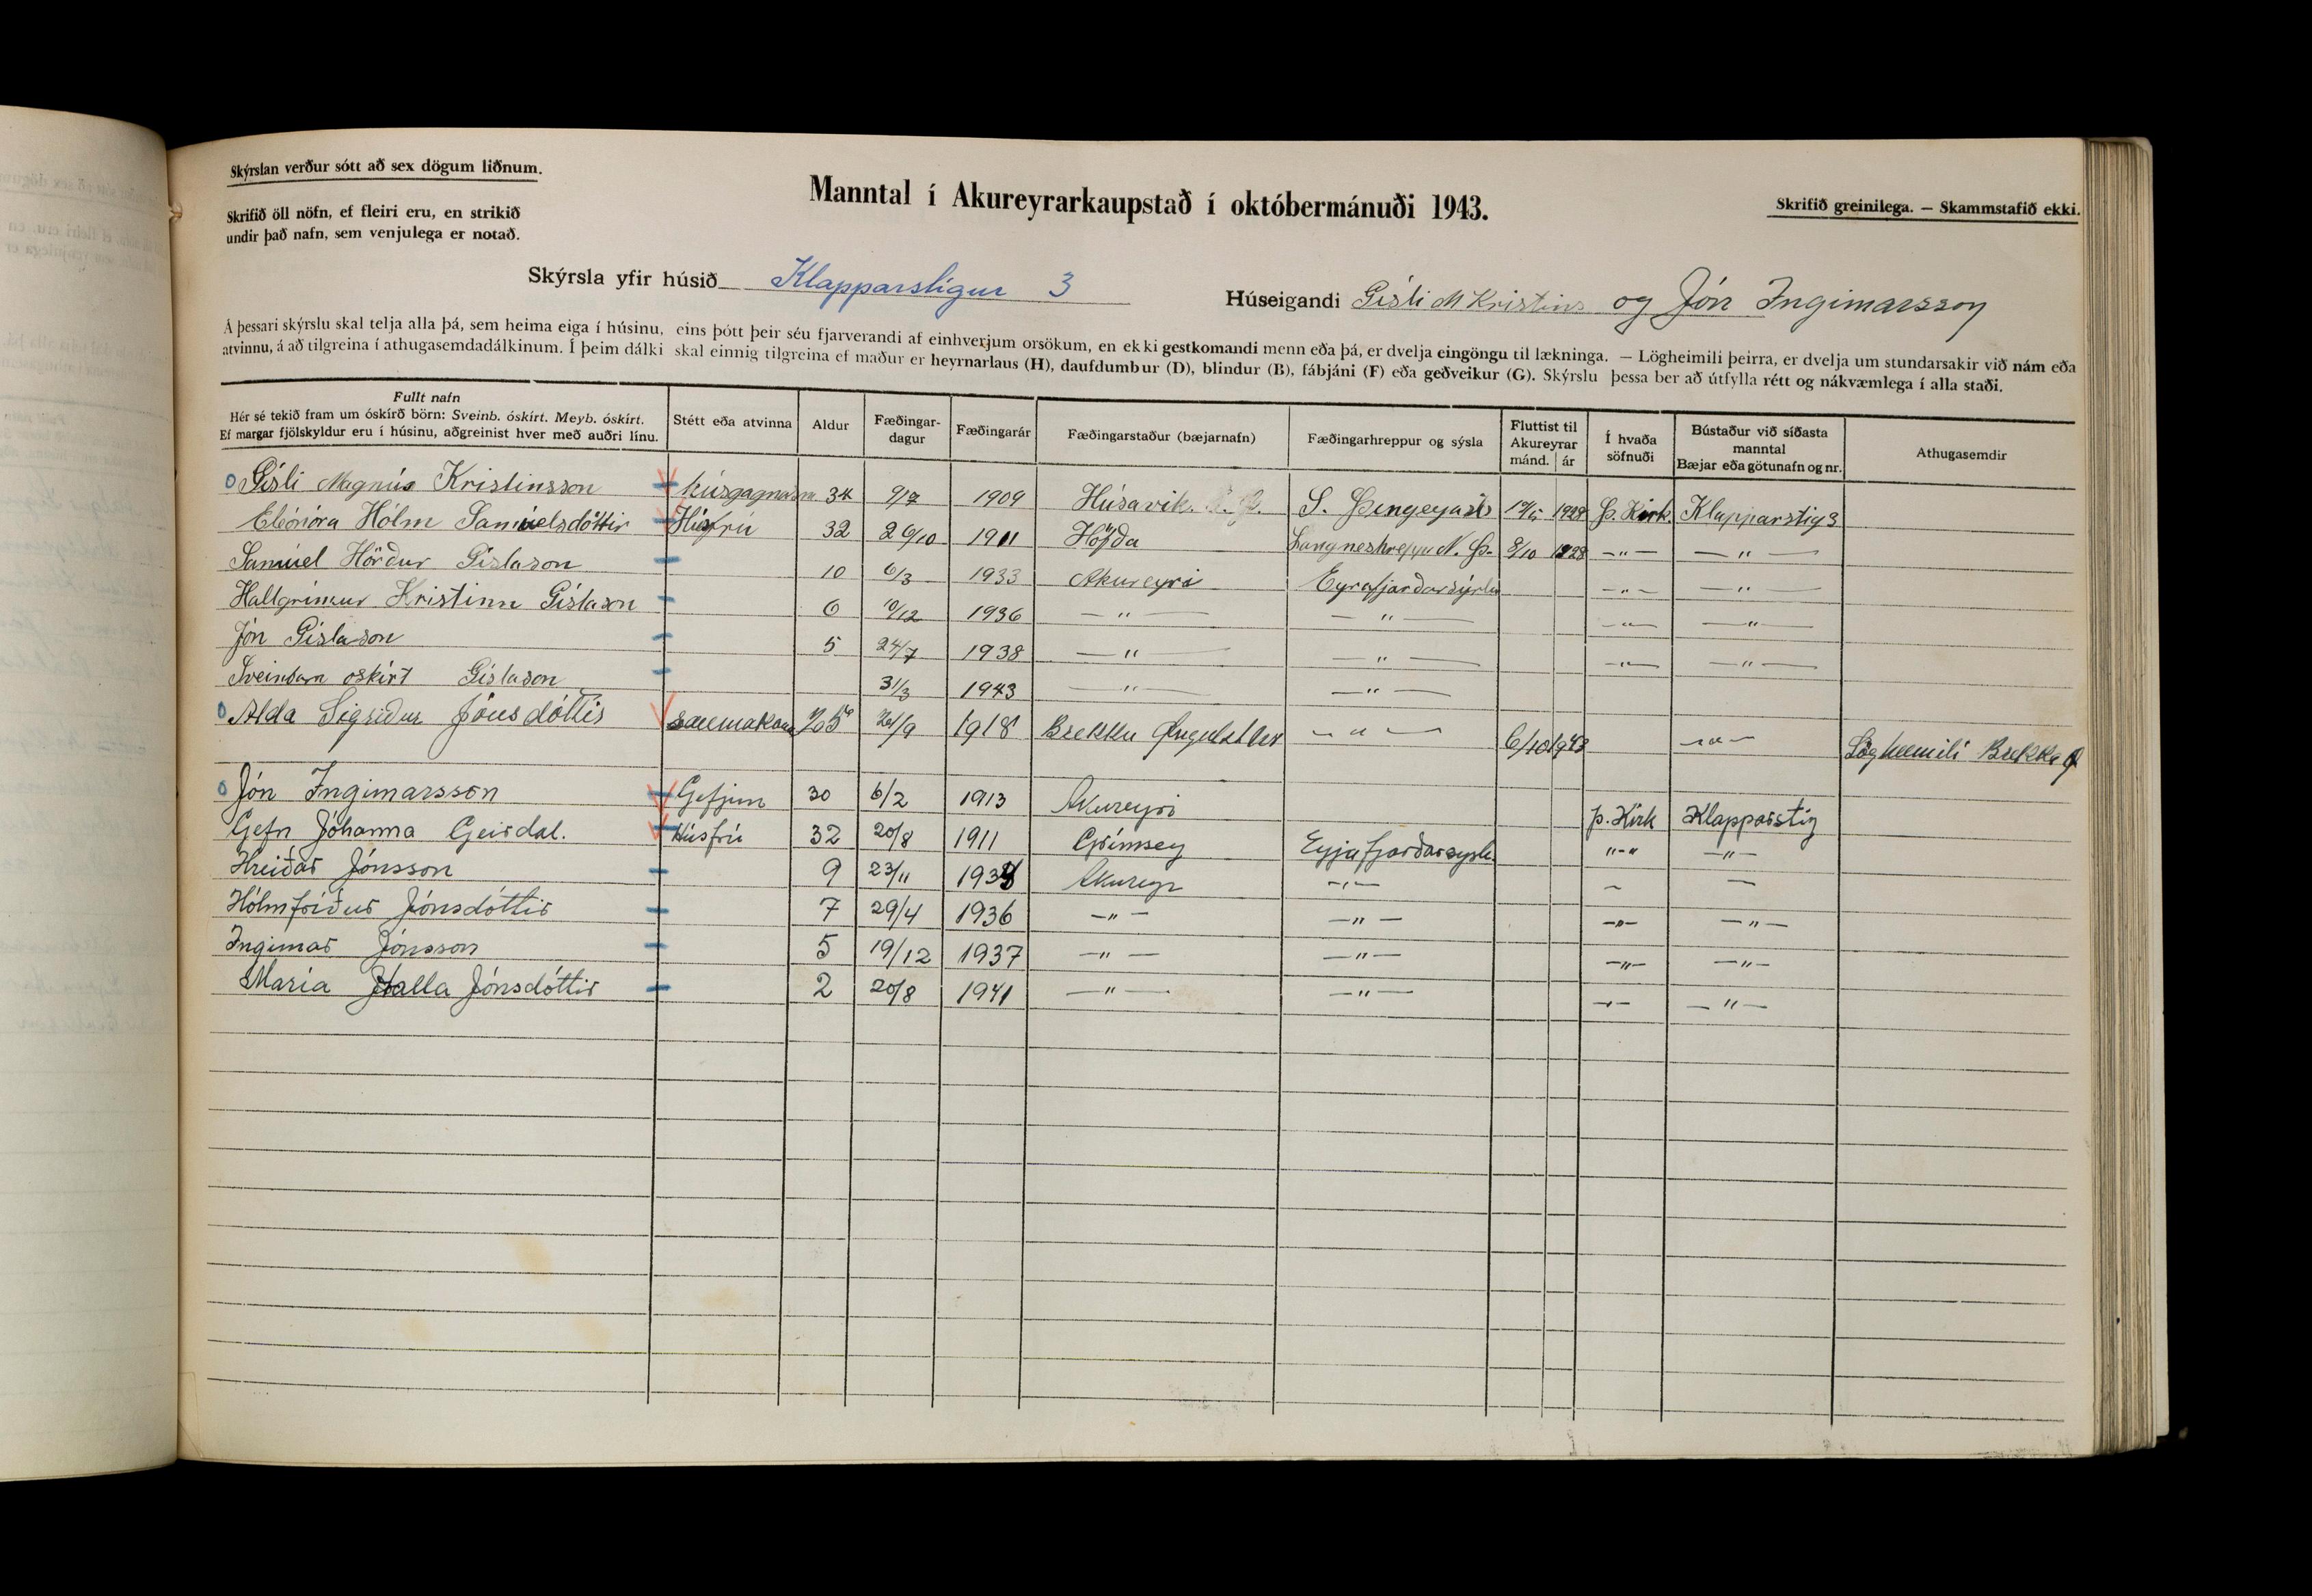 Skýrslan verður sótt að sex dögum liðnum.
Skrifið öll nöfn, ef fleiri eru, en strikið
undir það nafn, sem venjulega er notað.
Manntal í Akureyrarkaupstað í októbermánuði 1943.
Skrifið greinilega. — Skammstafið ekki.
Skýrsla yfir húsið Klapparstígur 3
Húseigandi Gísli M Kristins og Jón Ingimarsson
Á þessari skýrslu skal telja alla þá, sem heima eiga í húsinu, eins þótt þeir séu fjarverandi af einhverjum orsökum, en ekki gestkomandi menn eða þá, er dvelja eingöngu til lækninga. — Lögheimili þeirra, er dvelja um stundarsakir við nám eða
atvinnu, á að tilgreina í athugasemdadálkinum. Í þeim dálki skal einnig tilgreina ef maður er heyrnarlaus (H), daufdumbur (D), blindur (B), fábjáni (F) eða geðveikur (G). Skýrslu þessa ber að útfylla rétt og nákvæmlega í alla staði.
Fullt nafn
Hér sé tekið fram um óskírð börn: Sveinb. óskírt. Meyb. óskírt.
Ef margar fjölskyldur eru í húsinu, aðgreinist hver með auðri línu.
Stétt eða atvinna
Aldur
Fæðingar-
dagur
Fæðingarár
Fæðingarstaður (bæjarnafn)
Fæðingarhreppur og sýsla
Fluttist til
Akureyrar
mánd. ár
Í hvaða
söfnuði
Bústaður við síðasta
manntal
Bæjar eða götunafn og nr.
Athugasemdir
Gísli Magnús Kristinsson 34 9/7 1909 Húsavik. S. Þingeyas 1928 Þ. Kirk. Klapparstig 3
Eleónóra Hólm Samúelsdóttir Húsfrú 32 26/10 1911 Höfða Langneshreppu N. Þ. 8/10 1928 —"— —"—
Samúel Hörður Gíslason 10 6/3 1933 Akureyri Eyrafjarðarsýslu —"— —"—
Hallgrímur Kristinn Gíslason 6 10/12 1936 —"— —"— —"— —"—
Jón Gíslason 5 24/7 1938 —"— —"— —"— —"—
Sveinbarn oskírt Gíslason 31/3 1943 —"— —"—
Alda Sigriður Jónsdóttir saumakona 1918 Brekku —"— 6/10 1943 —"— Lögheemili Brekka
Jón Ingimarsson Gefjun 30 6/2 1913 Akureyri Þ. Kirk Klapparstig
Gefn Jóhanna Geirdal. Húsfrú 32 20/8 1911 Grímsey Eyjafjarðarsysla "-" —"—
Hreiðar Jónsson 9 23/11 Akureyr —"— — —
Hólmfríður Jónsdóttir 7 29/4 1936 —"— —"— —"— —"—
Ingimar Jónsson 5 19/12 1937 —"— —"— —"— —"—
María Halla Jónsdóttir 2 20/8 1941 —"— —"— —"— —"—